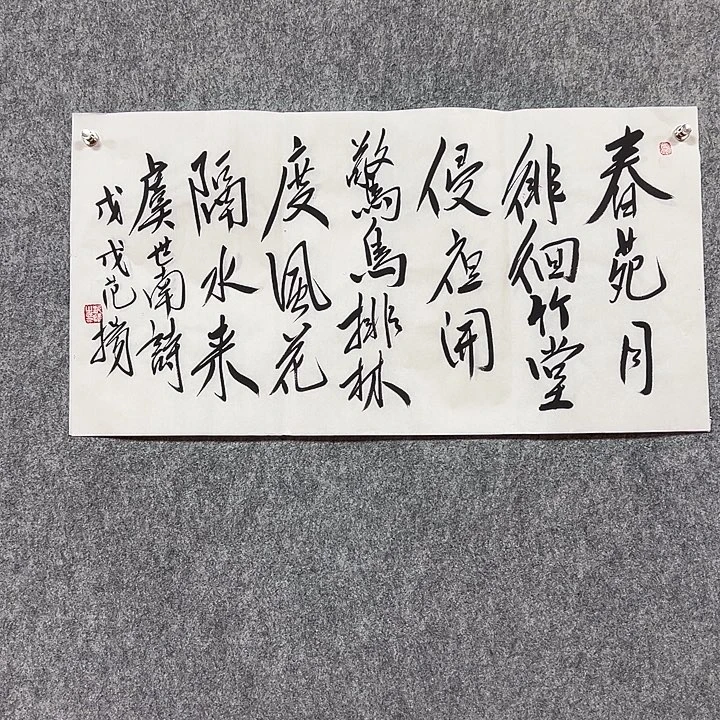 春苑月
徘徊竹堂
侵夜開
驚鳥排林
度風花
隔水来
虞世南詩
戊戌范